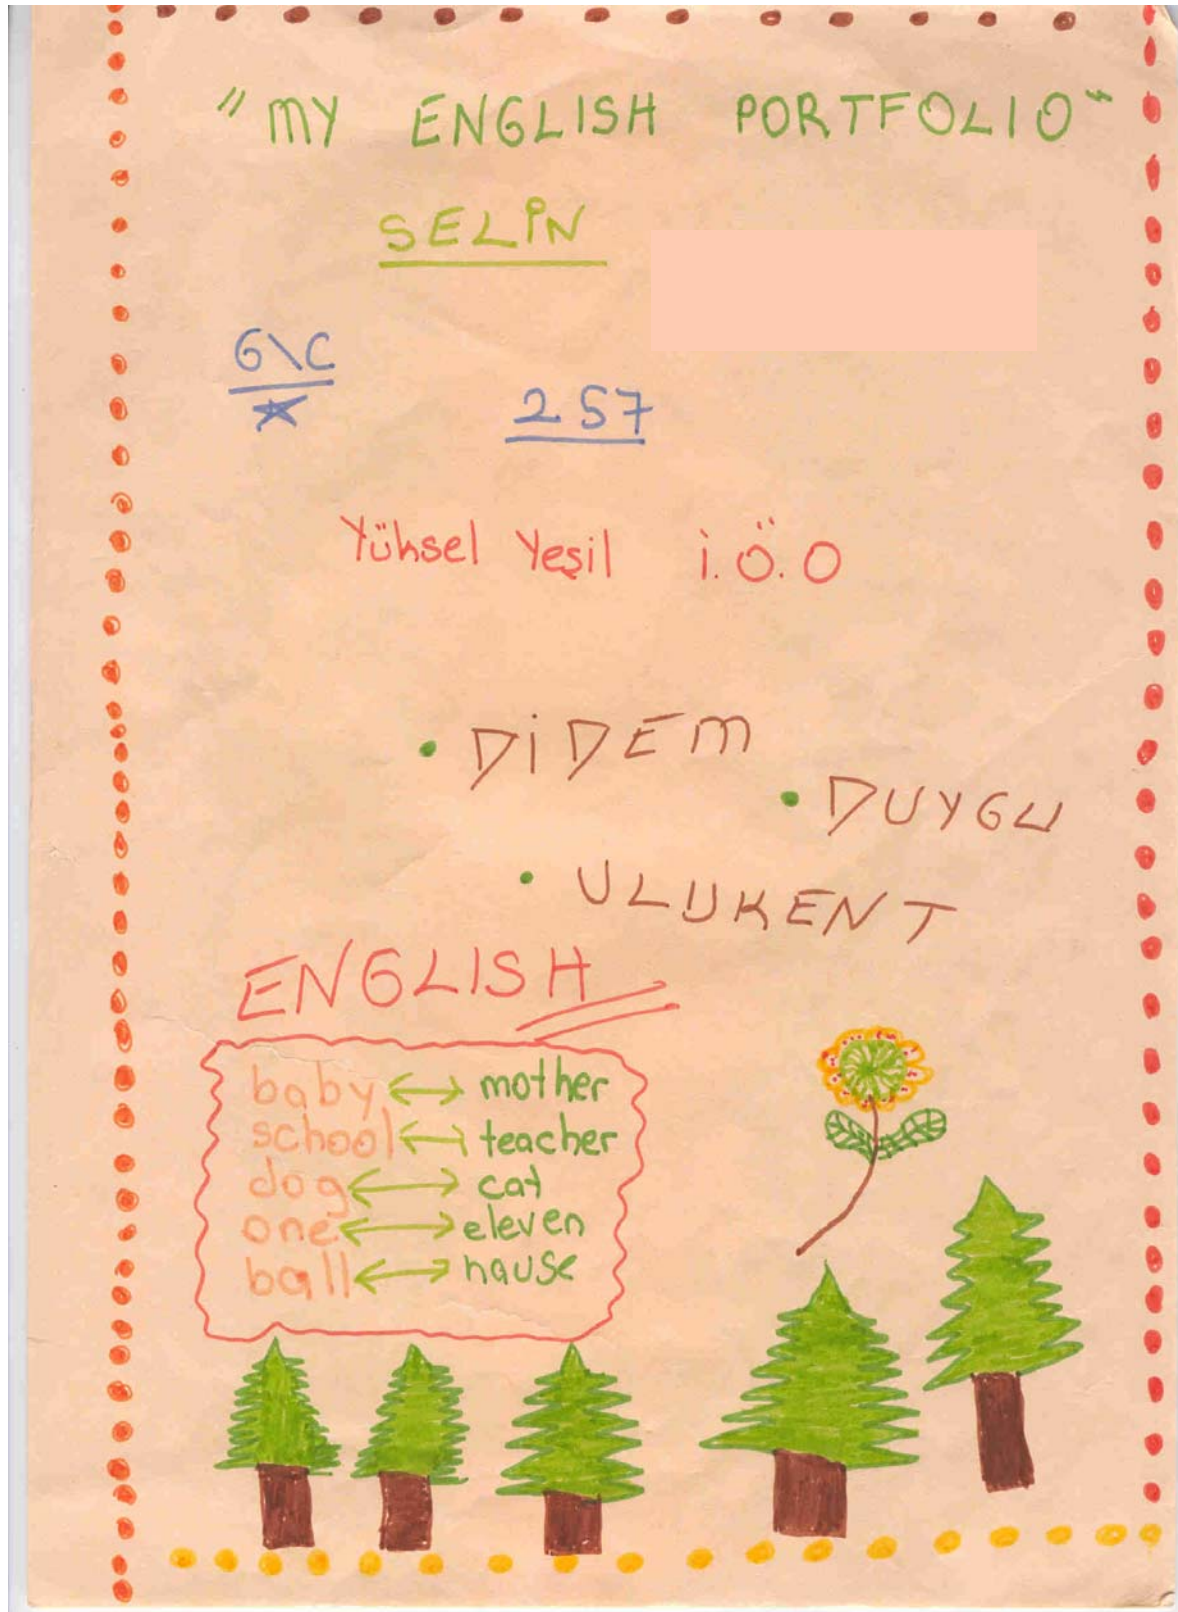 "MY ENGLISH PORTFOLIO"
SELİN
6\C
257
Yüksel Yeşil i.Ö.O
• DİDEM
• DUYGU
• ULUKENT
ENGLISH
baby ↔ mother
school ↔ teacher
dog ↔ cat
one ↔ eleven
ball ↔ hause